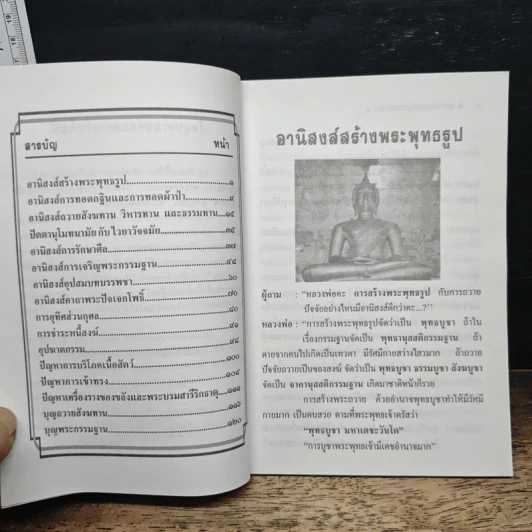 สารบัญ หน้า
อานิสงส์สร้างพระพุทธรูป..............................๑
อานิสงส์การทอดกฐินและการทอดผ้าป่า..............๕
อานิสงส์ถวายสังฆทาน วิหารทาน และธรรมทาน...๑๕
ปัตตานุโมทนามัย กับ ไวยาวัจจมัย..................๒๕
อานิสงส์การรักษาศีล..............................๓๗
อานิสงส์การเจริญพระกรรมฐาน.....................๔๘
อานิสงส์อุปสมบทบรรพชา..........................๖๐
อานิสงส์คาถาพระปัจเจกโพธิ์.......................๗๐
การอุทิศส่วนกุศล................................๘๐
การชำระหนี้สงฆ์
อุปฆาตกรรม
ปัญหาการบริโภคเนื้อสัตว์........................๑๐๐
ปัญหาการเข้าทรง................................๑๐๘
ปัญหาเครื่องรางของขลังและพระบรมสารีริกธาตุ...๑๑๑
บุญถวายสังฆทาน................................๑๑๖
บุญพระกรรมฐาน................................๑๒๐
อานิสงส์สร้างพระพุทธรูป
ผู้ถาม : "หลวงพ่อคะ การสร้างพระพุทธรูป กับการถวาย
ปัจจัยอย่างไหนมีอานิสงส์ดีกว่าคะ...?"
หลวงพ่อ : "การสร้างพระพุทธรูปจัดว่าเป็น พุทธบูชา ถ้าใน
เรื่องกรรมฐานจัดเป็น พุทธานุสสติกรรมฐาน ถ้า
ตายจากคนไปเกิดเป็นเทวดา มีรัศมีกายสว่างไสวมาก ถ้าถวาย
ปัจจัยถวายเป็นของสงฆ์ จัดว่าเป็น พุทธบูชา ธรรมบูชา สังฆบูชา
จัดเป็น จาคานุสสติกรรมฐาน เกิดมาชาติหน้าก็รวย
การสร้างพระถวาย ด้วยอำนาจพุทธบูชาทำให้มีรัศมี
กายมาก เป็นคนสวย ตามที่พระพุทธเจ้าตรัสว่า
"พุทธบูชา มหาเตชะวันโต"
"การบูชาพระพุทธเจ้ามีเดชอำนาจมาก"